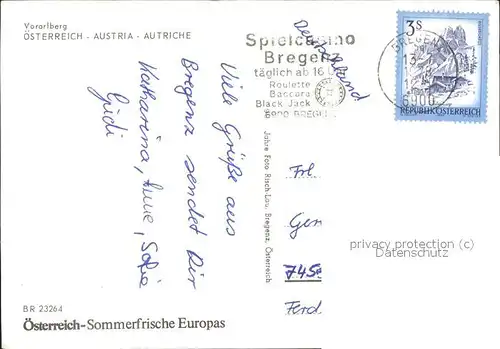 Vorarlberg
ÖSTERREICH - AUSTRIA - AUTRICHE
Spielcasino
Bregenz
täglich ab 16 U
Roulette
Baccara
Black Jack
6900 BREGE
BREGEN
13
6900
3S
REPUBLIK ÖSTERREICH
Deutschland
Viele Grüße aus
Bregenz sendet Dir
Katharina, Anne, Sofie
Gidi
Jahre Foto Risch-Lau, Bregenz, Österreich
Frl
Gen
745
Ferd
privacy protection (c)
Datenschutz
BR 23264
Österreich-Sommerfrische Europas